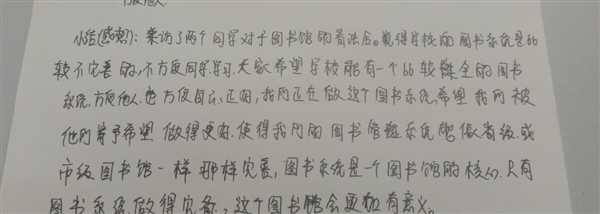 小结(感想): 采访了两个同学对于图书馆的看法后。觉得学校的图书系统是比
较不完善的,不方便同学学习.大家希望学校能有一个比较健全的图书
系统.方便他人.也方便自己.正因,我们正在做这个图书系统.希望我们被
他们寄予希望.做得更好.使得我们的图书馆系统能做省级或
市级图书馆一样那样完善,图书系统是一个图书馆的核心.只有
图书系统做得完善,这个图书馆会更加有意义。